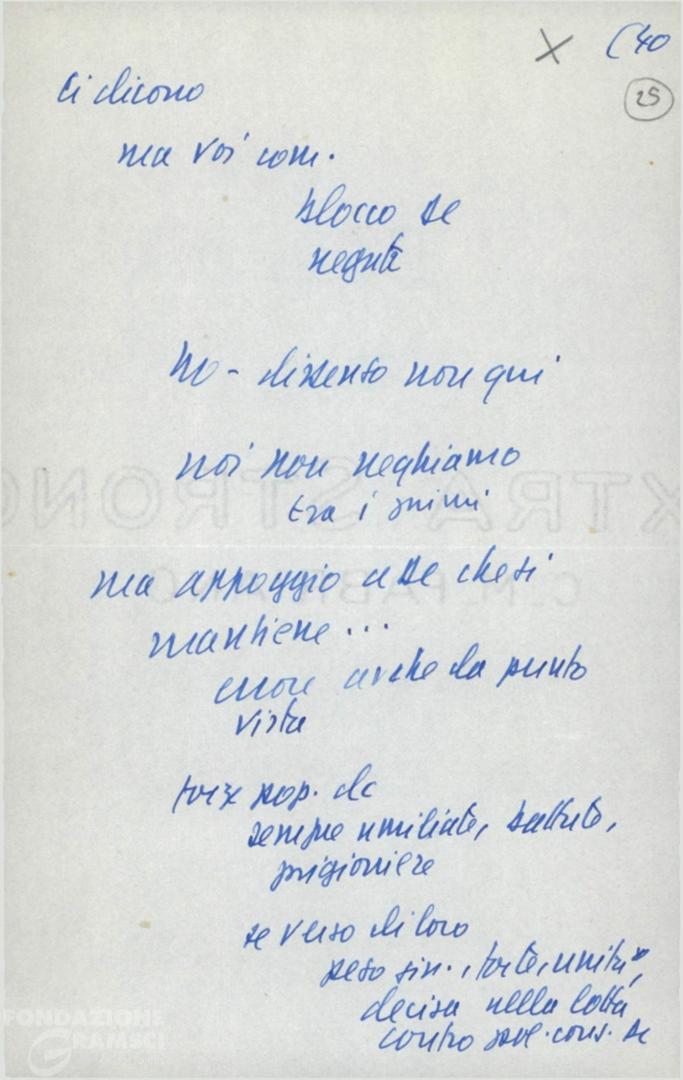 X (40
25
Ci dicono
ma voi com.
blocco se
negate
No - dissenso non qui
noi non neghiamo
tra i primi
ma appoggio a DC che si
mantiene ...
errore anche da punto
vista
forze pop. dc
sempre umiliate, battute,
prigioniere
se verso di loro
peso sin., forte, unita,
decisa nella lotta
contro pol. cons. DC
FONDAZIONE
GRAMSCI